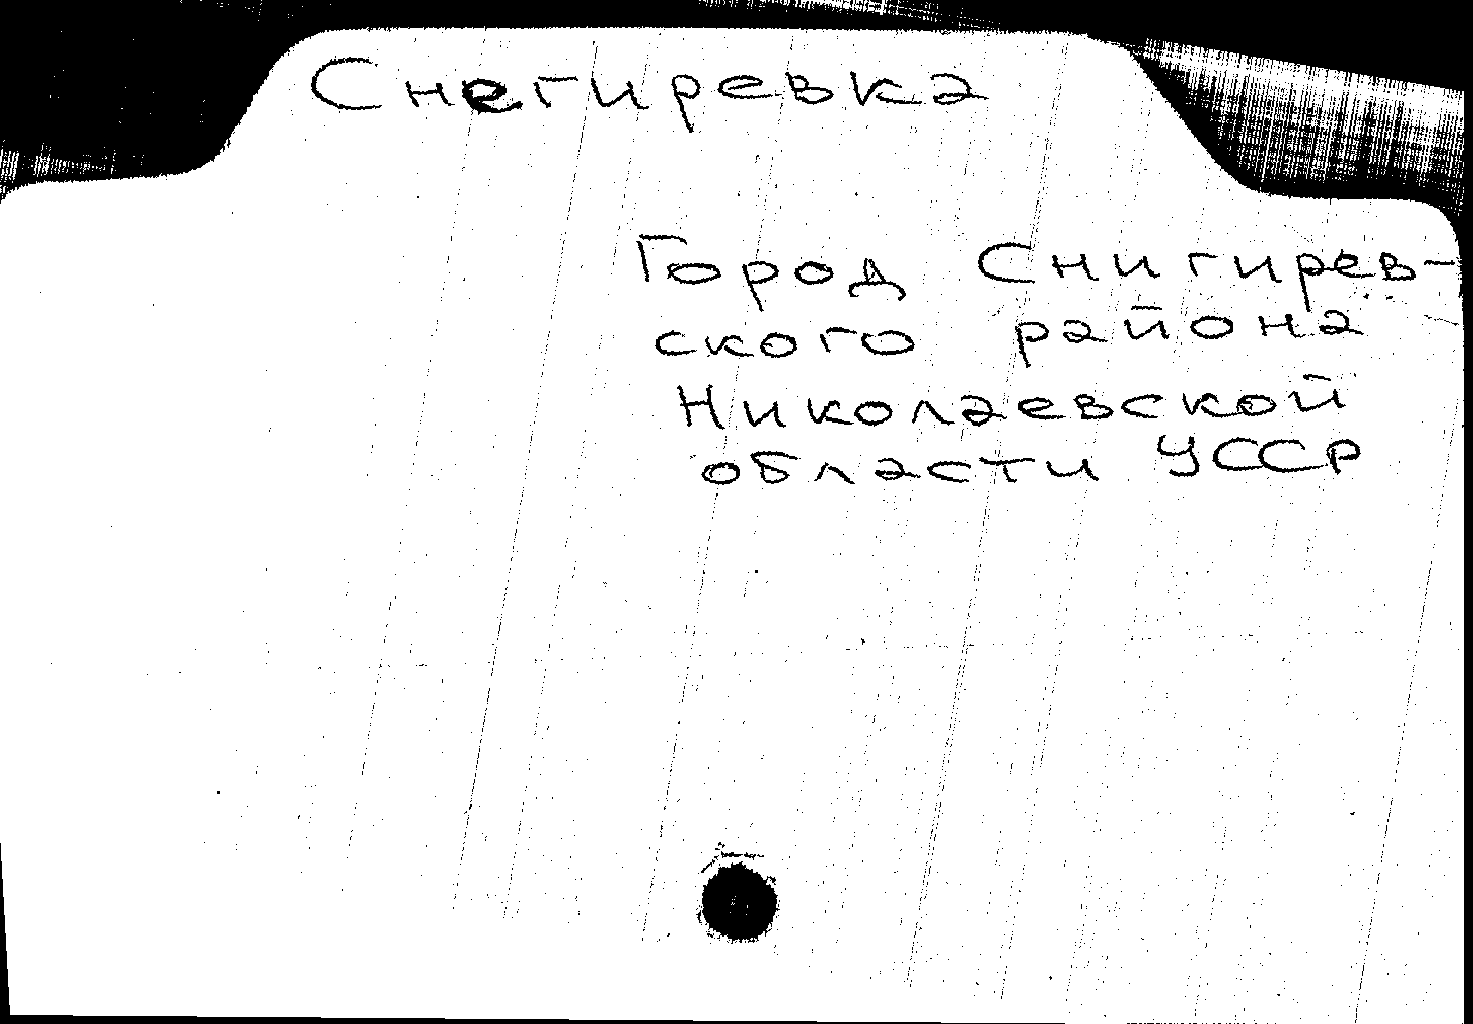 Снегиревка
Город Снигирев-
ского района
Николаевской
области УССР